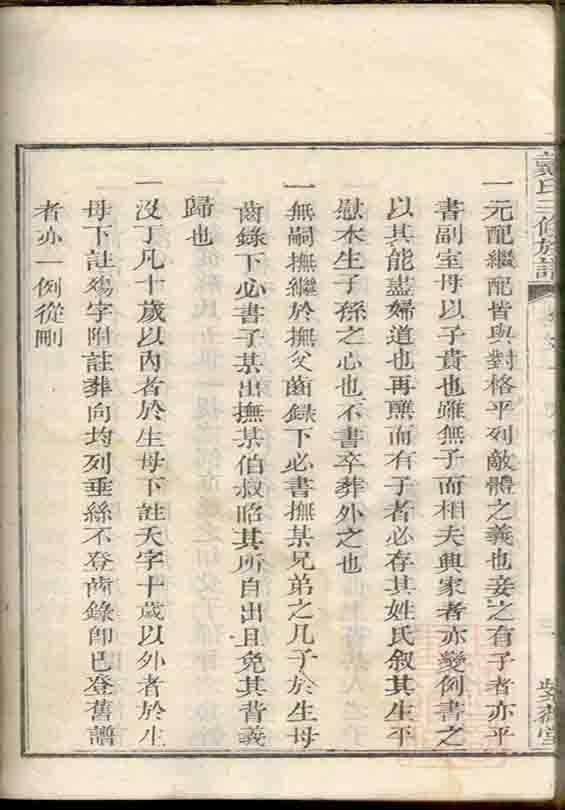 戴氏三修族譜
一元配繼配皆與對格平列敵體之義也妾之有子者亦平
書副室母以子貴也雖無子而相夫興家者亦變例書之
以其能盡婦道也再醮而有子者必存其姓氏叙其生平
慰本生子孫之心也不書卒葬外之也
一無嗣撫繼於撫父齒錄下必書撫某兄弟之几子於生母
齒錄下必書子某出撫某伯叔昭其所自出且免其背義
歸也
一沒丁凡十歲以內者於生母下註夭字十歲以外者於生
母下註殤字附註葬向均列垂絲不登齒錄即已登舊譜
者亦一例從刪